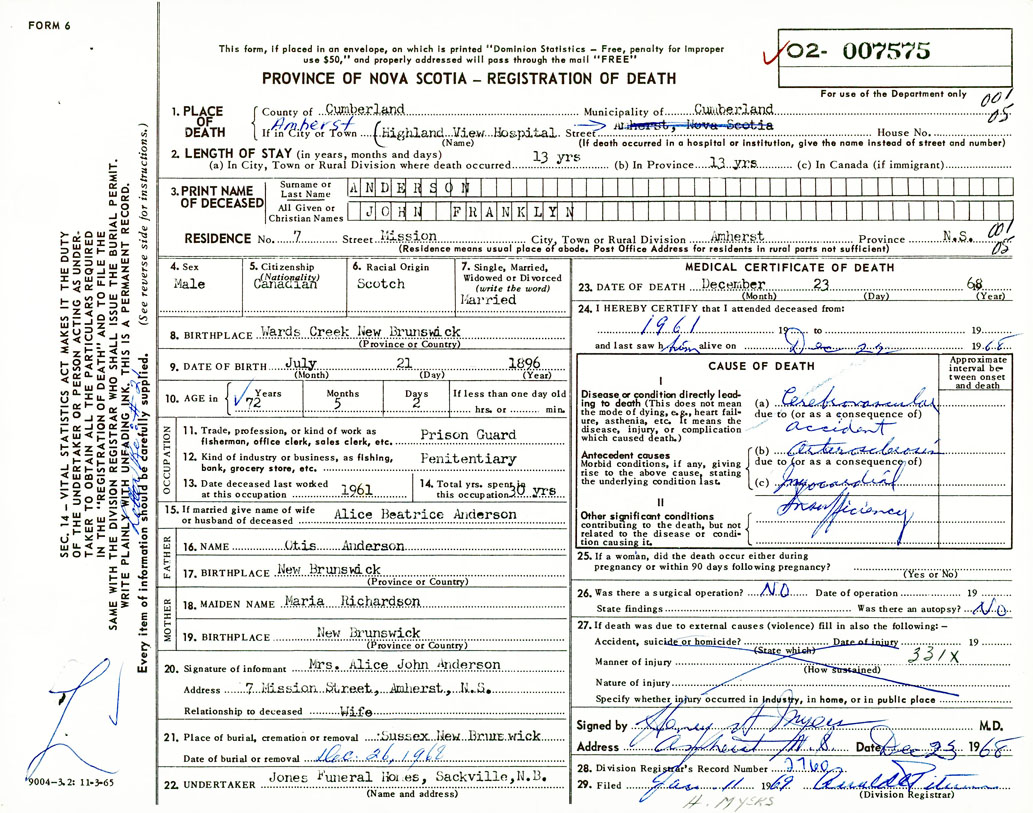 FORM 6
This form, if placed in an envelope, on which is printed "Dominion Statistics – Free, penalty for improper
use $50," and properly addressed will pass through the mail "FREE"
PROVINCE OF NOVA SCOTIA – REGISTRATION OF DEATH
✓02- 007575
For use of the Department only
001
05
1. PLACE OF DEATH
County of Cumberland Municipality of Cumberland
If in City or Town Amherst (Highland View Hospital Street Amherst, Nova Scotia House No.
(Name) (If death occurred in a hospital or institution, give the name instead of street and number)
2. LENGTH OF STAY (in years, months and days)
(a) In City, Town or Rural Division where death occurred 13 yrs (b) In Province 13 yrs (c) In Canada (if immigrant)
3. PRINT NAME OF DECEASED
Surname or Last Name ANDERSON
All Given or Christian Names JOHN FRANKLYN
RESIDENCE No. 7 Street Mission City, Town or Rural Division Amherst Province N.S. 001
05
(Residence means usual place of abode. Post Office Address for residents in rural parts not sufficient)
4. Sex
Male
5. Citizenship
(Nationality)
Canadian
6. Racial Origin
Scotch
7. Single, Married,
Widowed or Divorced
(write the word)
Married
8. BIRTHPLACE Wards Creek New Brunswick
(Province or Country)
9. DATE OF BIRTH July 21 1896
(Month) (Day) (Year)
10. AGE in ✓ Years Months Days If less than one day old
72 5 2 hrs. or min.
OCCUPATION
11. Trade, profession, or kind of work as
fisherman, office clerk, sales clerk, etc. Prison Guard
12. Kind of industry or business, as fishing,
bank, grocery store, etc. Penitentiary
13. Date deceased last worked
at this occupation 1961
14. Total yrs. spent in
this occupation 30 yrs
15. If married give name of wife
or husband of deceased Alice Beatrice Anderson
FATHER
16. NAME Otis Anderson
17. BIRTHPLACE New Brunswick
(Province or Country)
MOTHER
18. MAIDEN NAME Maria Richardson
19. BIRTHPLACE New Brunswick
(Province or Country)
20. Signature of informant Mrs. Alice John Anderson
Address 7 Mission Street, Amherst, N.S.
Relationship to deceased Wife
21. Place of burial, cremation or removal Sussex New Brunswick
Date of burial or removal Dec. 26, 1968
22. UNDERTAKER Jones Funeral Homes, Sackville, N.B.
(Name and address)
MEDICAL CERTIFICATE OF DEATH
23. DATE OF DEATH December 23 68
(Month) (Day) (Year)
24. I HEREBY CERTIFY that I attended deceased from:
1961 19 to 19
and last saw him alive on Dec 23 1968
CAUSE OF DEATH
Approximate
interval be-
tween onset
and death
I
Disease or condition directly lead-
ing to death (This does not mean
the mode of dying, e.g., heart fail-
ure, asthenia, etc. It means the
disease, injury, or complication
which caused death.)
(a) Cerebrovascular
due to (or as a consequence of)
accident
Antecedent causes
Morbid conditions, if any, giving
rise to the above cause, stating
the underlying condition last.
(b) Arterosclerosis
due to (or as a consequence of)
(c) Myocardial
Insufficiency
II
Other significant conditions
contributing to the death, but not
related to the disease or condi-
tion causing it.
25. If a woman, did the death occur either during
pregnancy or within 90 days following pregnancy?
(Yes or No)
26. Was there a surgical operation? NO Date of operation 19
State findings Was there an autopsy? NO
27. If death was due to external causes (violence) fill in also the following: –
Accident, suicide or homicide? Date of injury 19
(State which)
331X
Manner of injury
(How sustained)
Nature of injury
Specify whether injury occurred in industry, in home, or in public place
Signed by M.D.
Address Amherst N.S. Date Dec 23 1968
28. Division Registrar's Record Number 2760
29. Filed Jan 11 1969
(Division Registrar)
H. MYERS
SEC. 14 – VITAL STATISTICS ACT MAKES IT THE DUTY
OF THE UNDERTAKER OR PERSON ACTING AS UNDER-
TAKER TO OBTAIN ALL THE PARTICULARS REQUIRED
IN THE "REGISTRATION OF DEATH" AND TO FILE THE
SAME WITH THE DIVISION REGISTRAR WHO SHALL ISSUE THE BURIAL PERMIT.
WRITE PLAINLY WITH UNFADING INK. THIS IS A PERMANENT RECORD.
Every item of information should be carefully supplied. (See reverse side for instructions.)
9004–3.2: 11-3-65